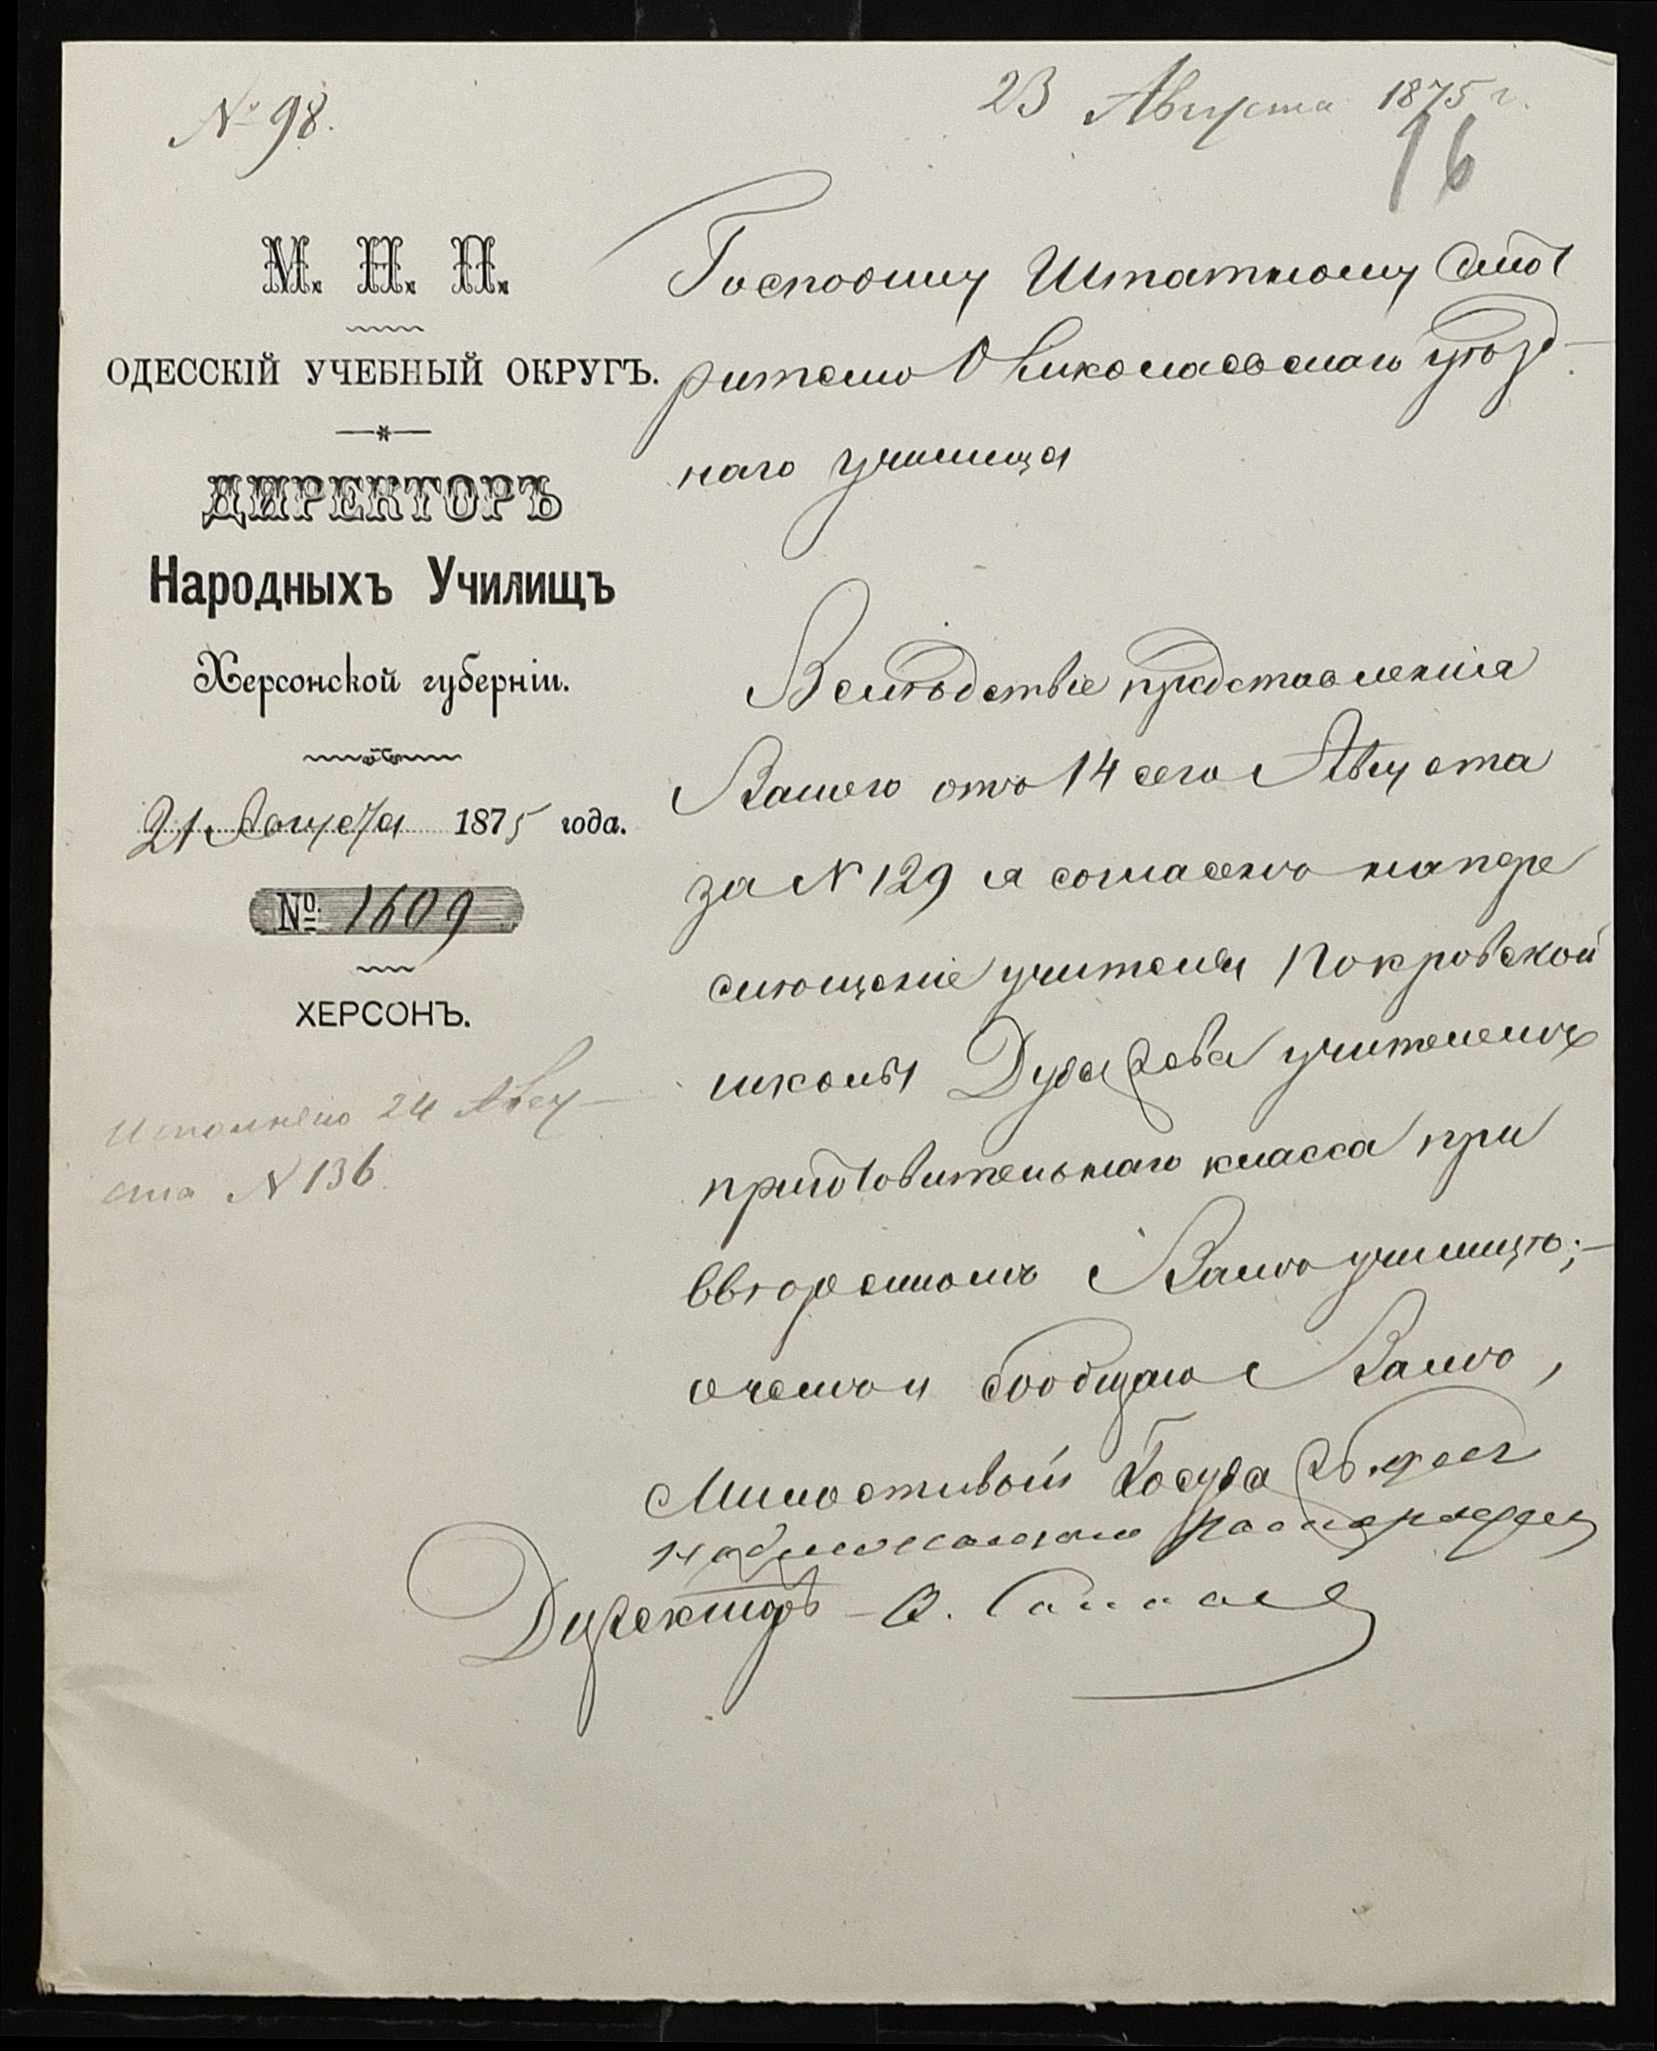 № 98.
23 Августа 1875 г.
16
М. Н. П.
ОДЕССКІЙ УЧЕБНЫЙ ОКРУГЪ.
ДИРЕКТОРЪ
Народныхъ Училищъ
Херсонской губерніи.
21 Августа 1875 года.
№ 1609
ХЕРСОНЪ.
Исполнено 24 Авгу-
ста № 136
Господину Штатному Смот
рителю Николаевскаго уѣзд-
наго училища
Вслѣдствіе представленія
Вашего отъ 14 сего Августа
за N 129 я согласенъ на пере
мѣщеніе учителя Покровской
школы учителемъ
приготовительнаго класса при
ввѣренномъ Вамъ училищѣ;-
о чемъ и сообщаю Вамъ,
Милостивый Государь для
надлежащаго распоряжен
Директоръ - В.